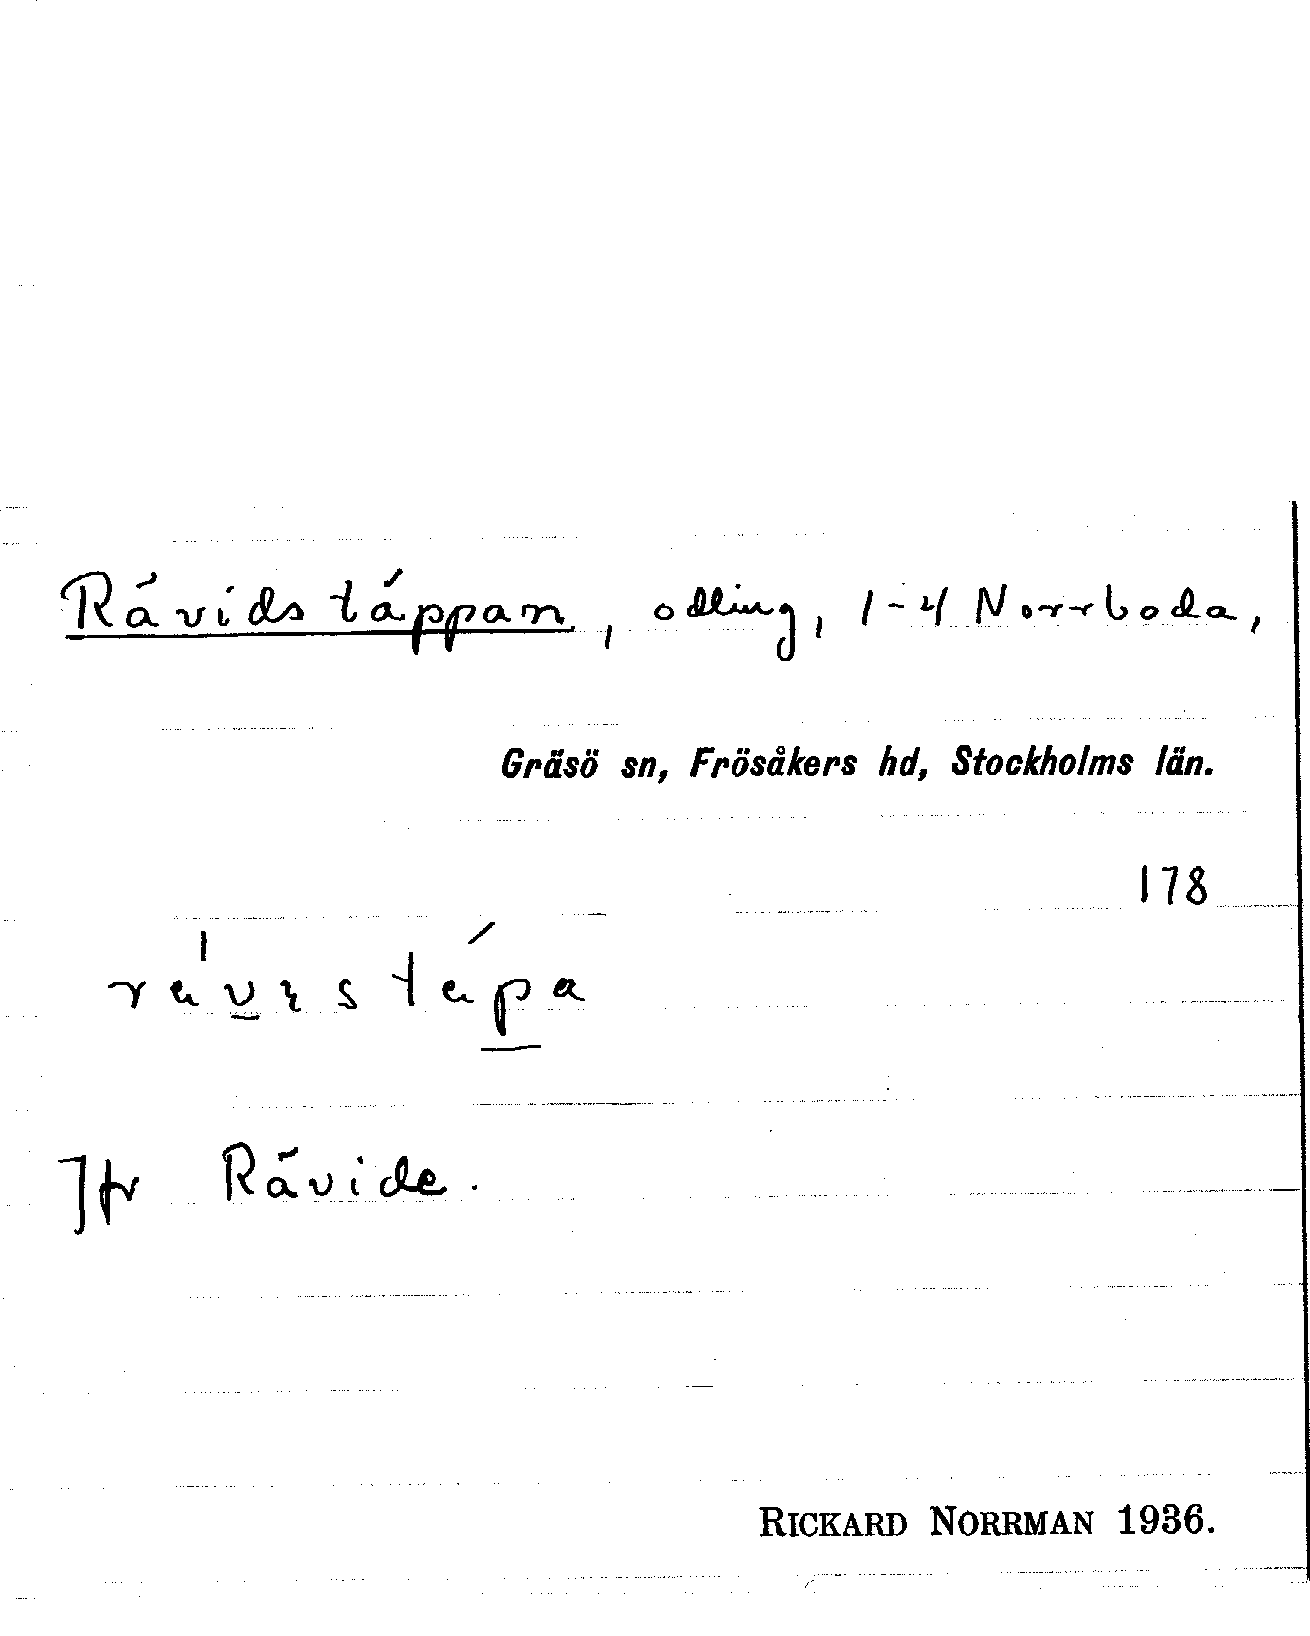 Rävidstäppan, odling, 1-4 Norrboda,
Gräsö sn, Frösåkers hd, Stockholms län.
178
Jfr Rävide.
RICKARD NORRMAN 1936.